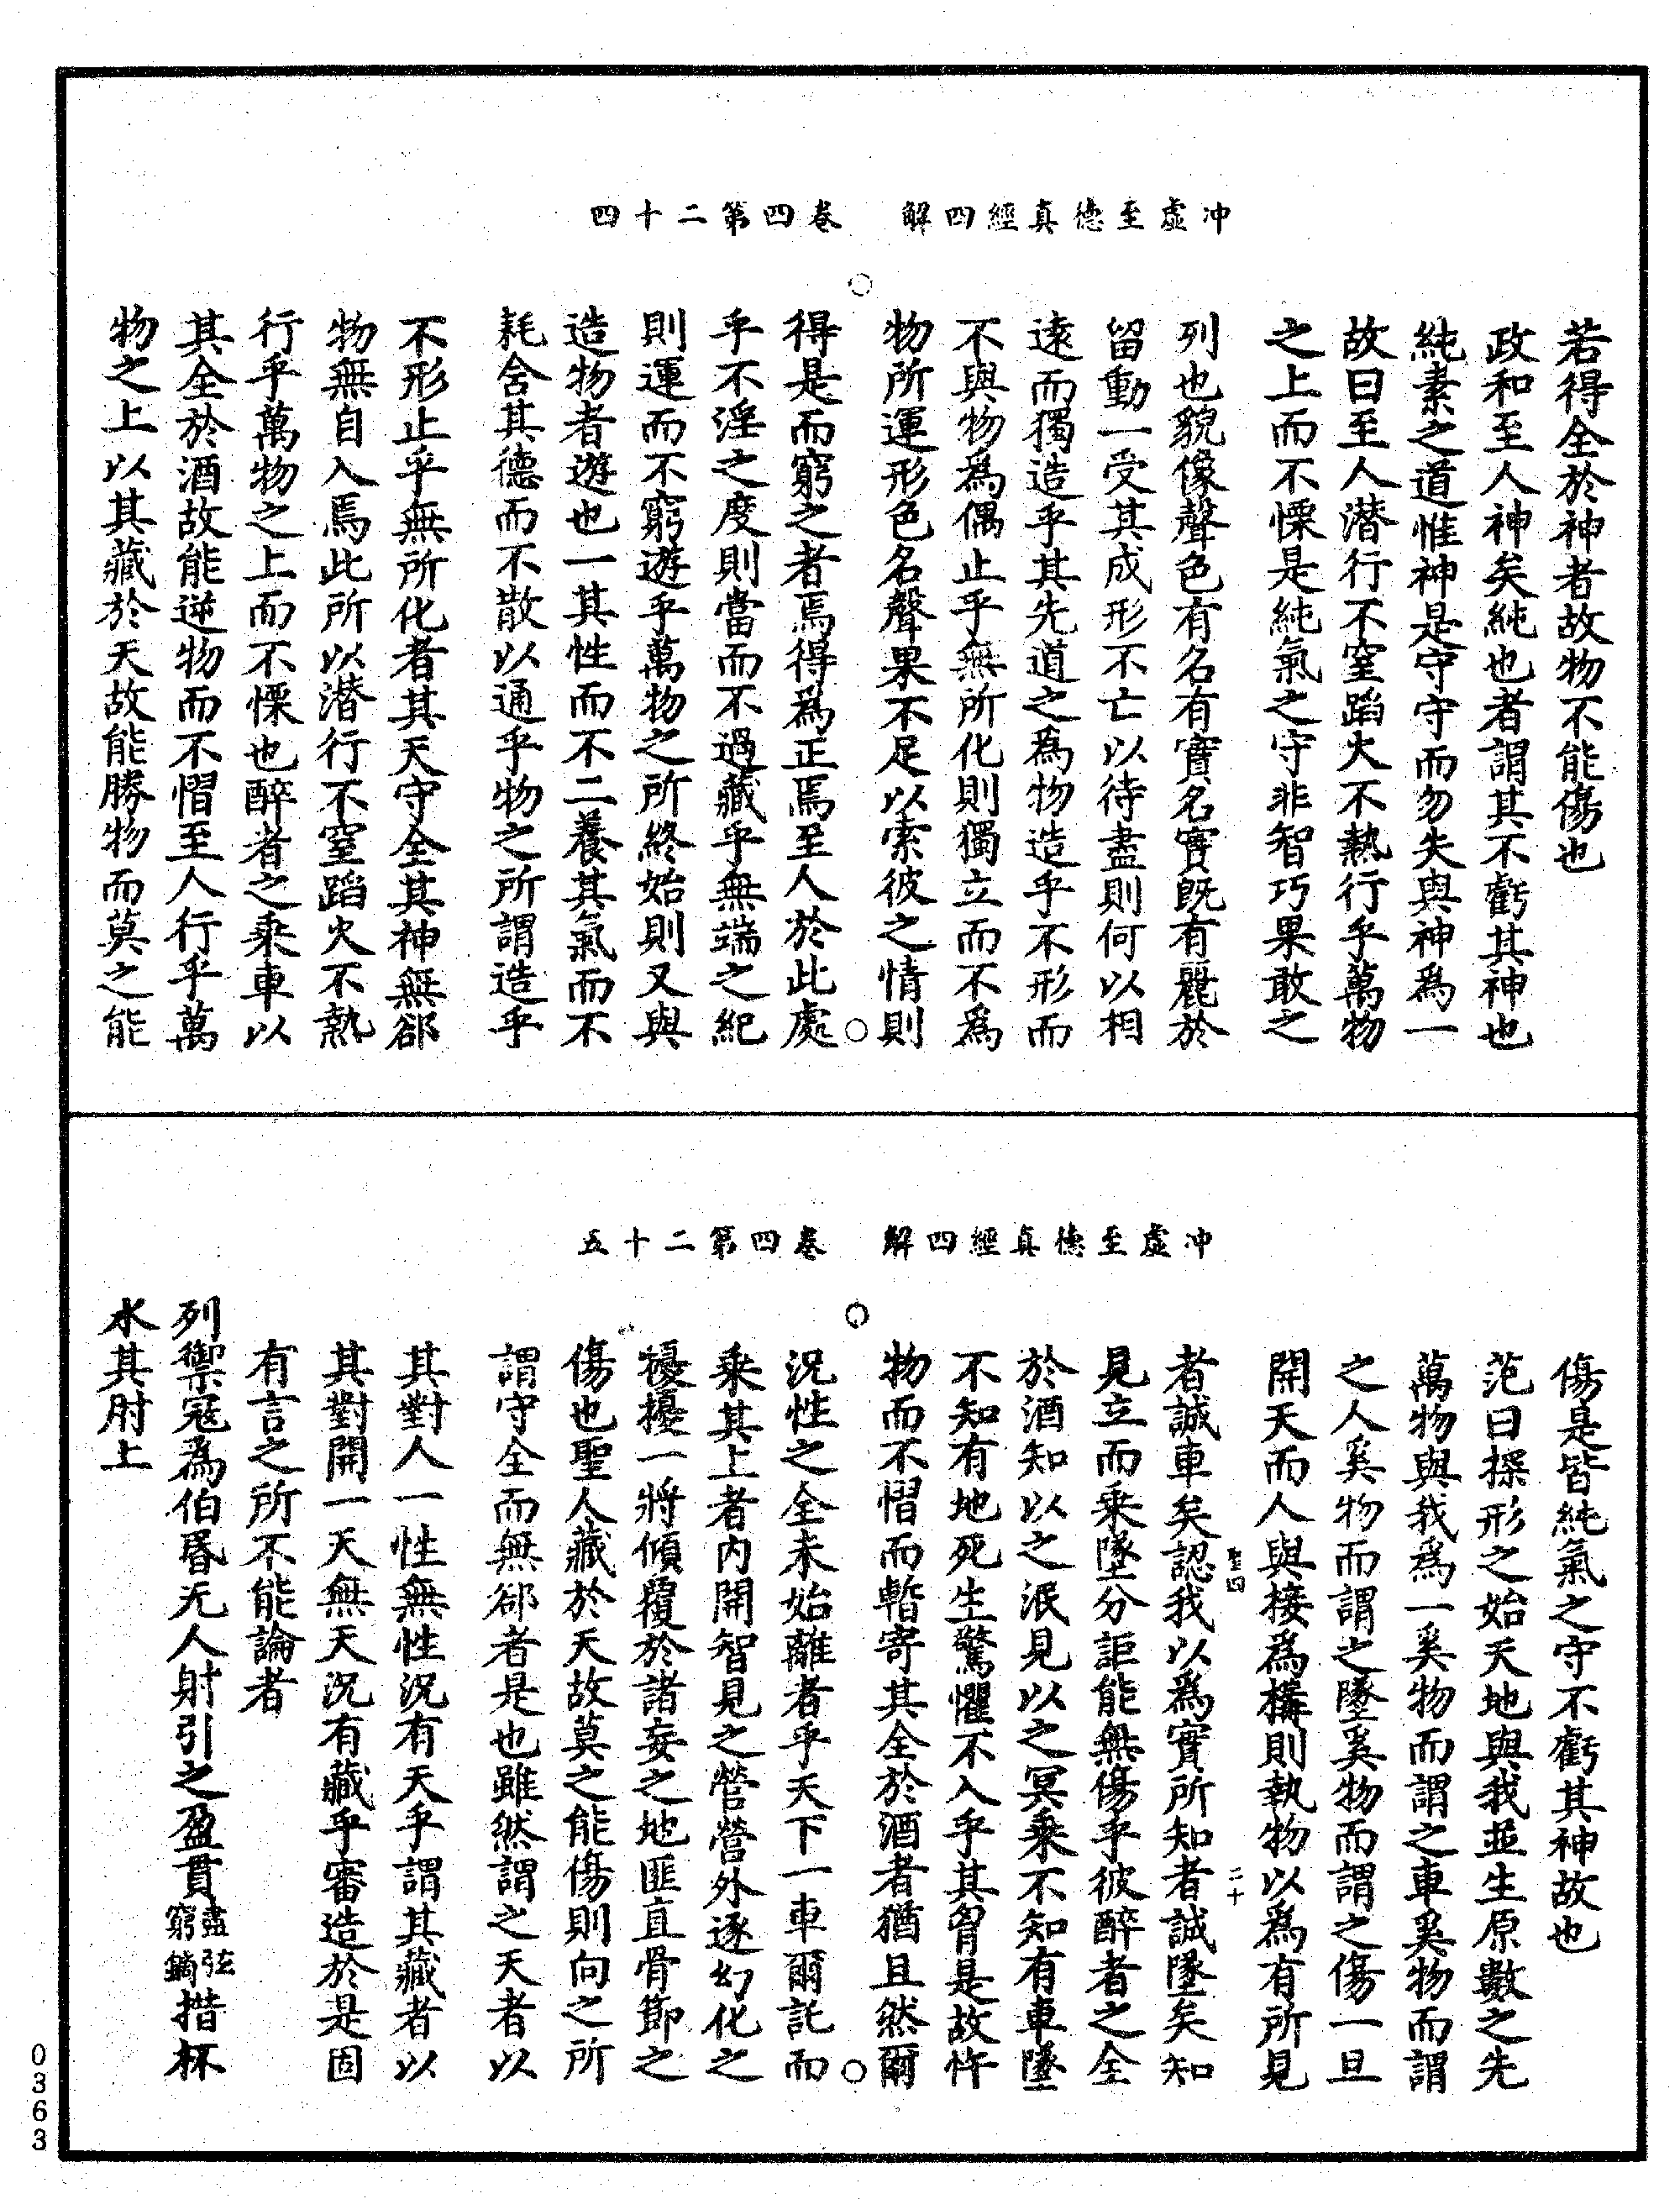 冲虛至德真經四解　卷四第二十四
若得全於神者故物不能傷也
政和至人神矣純也者謂其不虧其神也
純素之道惟神是守守而勿失與神爲一
故曰至人潛行不窒蹈火不熱行乎萬物
之上而不慄是純氣之守非智巧果敢之
列也貌像聲色有名有實名實旣有麗於
留動一受其成形不亡以待盡則何以相
遠而獨造乎其先道之爲物造乎不形而
不與物爲偶止乎無所化則獨立而不爲
物所運形色名聲果不足以索彼之情則
得是而窮之者焉得爲正焉至人於此處
乎不淫之度則當而不過藏乎無端之紀
則運而不窮遊乎萬物之所終始則又與
造物者遊也一其性而不二養其氣而不
耗含其德而不散以通乎物之所謂造乎
不形止乎無所化者其天守全其神無郤
物無自入焉此所以潛行不窒蹈火不熱
行乎萬物之上而不慄也醉者之乘車以
其全於酒故能逆物而不慴至人行乎萬
物之上以其藏於天故能勝物而莫之能
冲虛至德真經四解　卷四第二十五
傷是皆純氣之守不虧其神故也
范曰操形之始天地與我並生原數之先
萬物與我爲一奚物而謂之車奚物而謂
之人奚物而謂之墜奚物而謂之傷一旦
開天而人與接爲構則執物以爲有所見
者誠車矣認我以爲實所知者誠墜矣知
見立而乘墜分詎能無傷乎彼醉者之全
於酒知以之泯見以之冥乘不知有車墜
不知有地死生驚懼不入乎其胷是故忤
物而不慴而暫寄其全於酒者猶且然爾
況性之全未始離者乎天下一車爾託而
乘其上者內開智見之營營外逐幻化之
擾擾一將傾覆於諸妄之地匪直骨節之
傷也聖人藏於天故莫之能傷則向之所
謂守全而無郤者是也雖然謂之天者以
其對人一性無性況有天乎謂其藏者以
其對開一天無天況有藏乎審造於是固
有言之所不能論者
列禦寇爲伯昬无人射引之盈貫盡弦窮鏑措杯
水其肘上
聖四
二十
0363